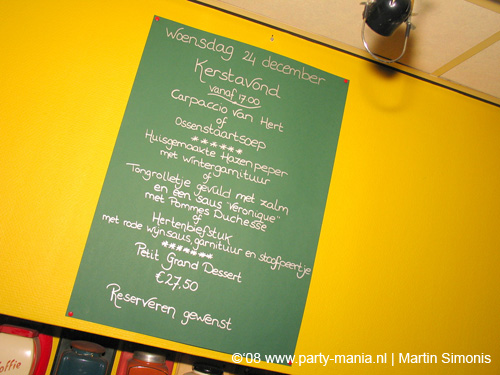 Woensdag 24 december
Kerstavond
vanaf 17.00
Carpaccio van Hert
of
Ossenstaartsoep
******
Huisgemaakte Hazenpeper
met wintergarnituur
of
Tongrolletje gevuld met zalm
en een saus "Veronique"
met Pommes Duchesse
of
Hertenbiefstuk
met rode wijnsaus, garnituur en stoofpeertje
*******
Petit Grand Dessert
€27,50
Reserveren gewenst
offie
©'08 www.party-mania.nl | Martin Simonis